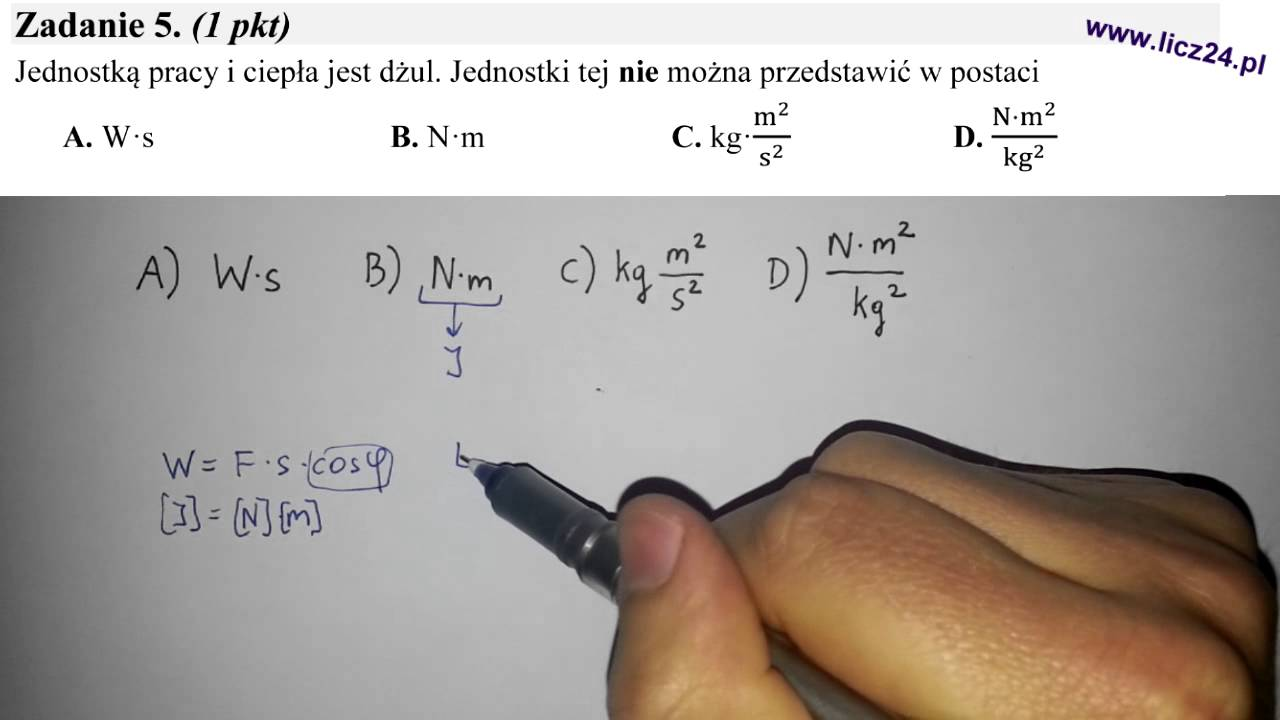 Zadanie 5. (1 pkt)
www.licz24.pl
Jednostką pracy i ciepła jest dżul. Jednostki tej nie można przedstawić w postaci
A. W·s B. N·m C. kg·m²/s² D. N·m²/kg²
A) W·s B) N·m C) kg m²/s² D) N·m²/kg²
J
W = F·s·cosφ
[J] = [N][m]